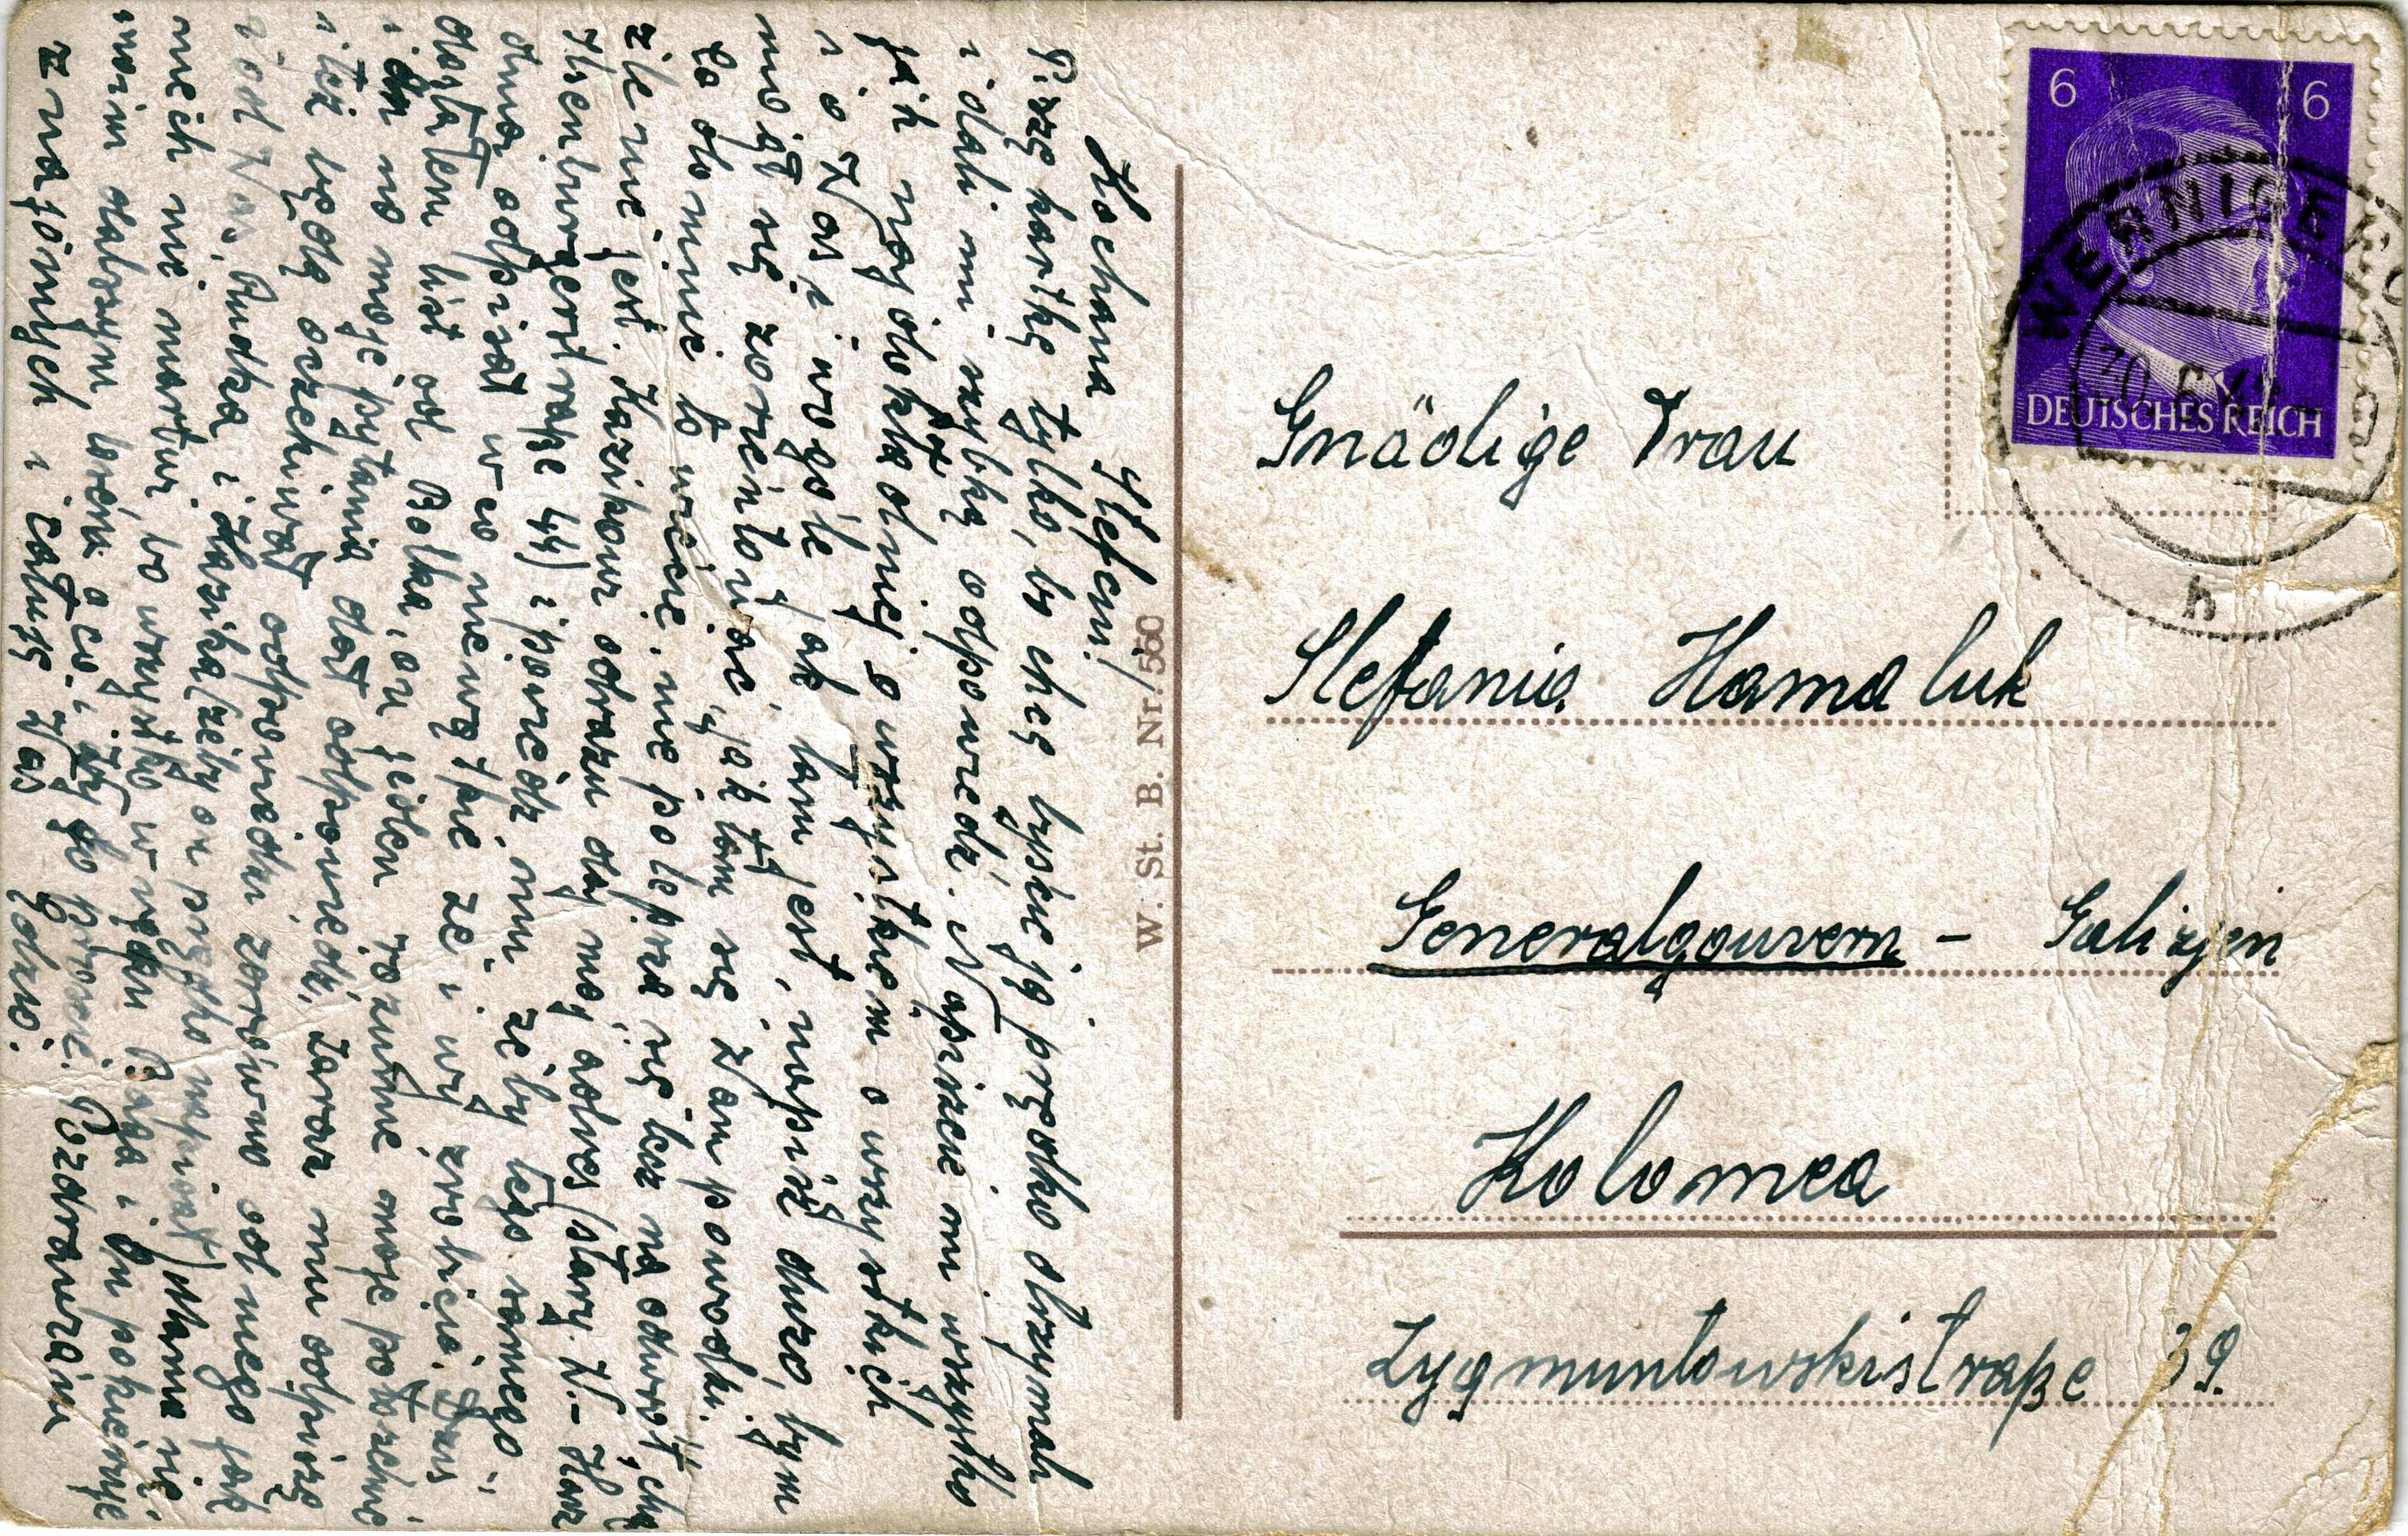 6 6
DEUTSCHES REICH
WERNIGE
h
Gnädige Frau
Stefania Hamaluk
Generalgouvern - Galizyen
Kolomea
Zygmuntowskistraße 39.
W. St. B. Nr. 560
Kochana Stefciu!
Piszę kartkę tylko, bo chcę byście ją prędko otrzymali
i dali mi szybką odpowiedź. Napiszcie mi wszystko
jak najdokładniej o wszystkiem o wszystkich
i o Was i wogóle jak tam jest, napisz dużo, bym
mógł się zorientować, jak tam się Wam powodzi.
Co do mnie to wiecie, nie polepsza się lecz na odwrót, choć
źle nie jest. Kazikowi odrazu daj mój adres (stary. W.- Harz
Ilsenburgerstraße 44) i powiedz mu żeby tego samego
dnia odpisał w co nie wątpię że i wy zrobicie. Dziś
dostałem list od Bolka, on jeden rozumie moje położenie
i on na moje pytania dał odpowiedź, zaraz mu odpiszę
i też będę oczekiwał odpowiedzi zarówno od niego jak
i od Was, Rudka i Kazika (żeby on prędko napisał) Mama się
niech nie martwi, bo wszystko w ręku Boga i On pokieruje
moim dalszym losem o co i Wy Go proście. Pozdrawiam
znajomych i całuję Was Edzio.